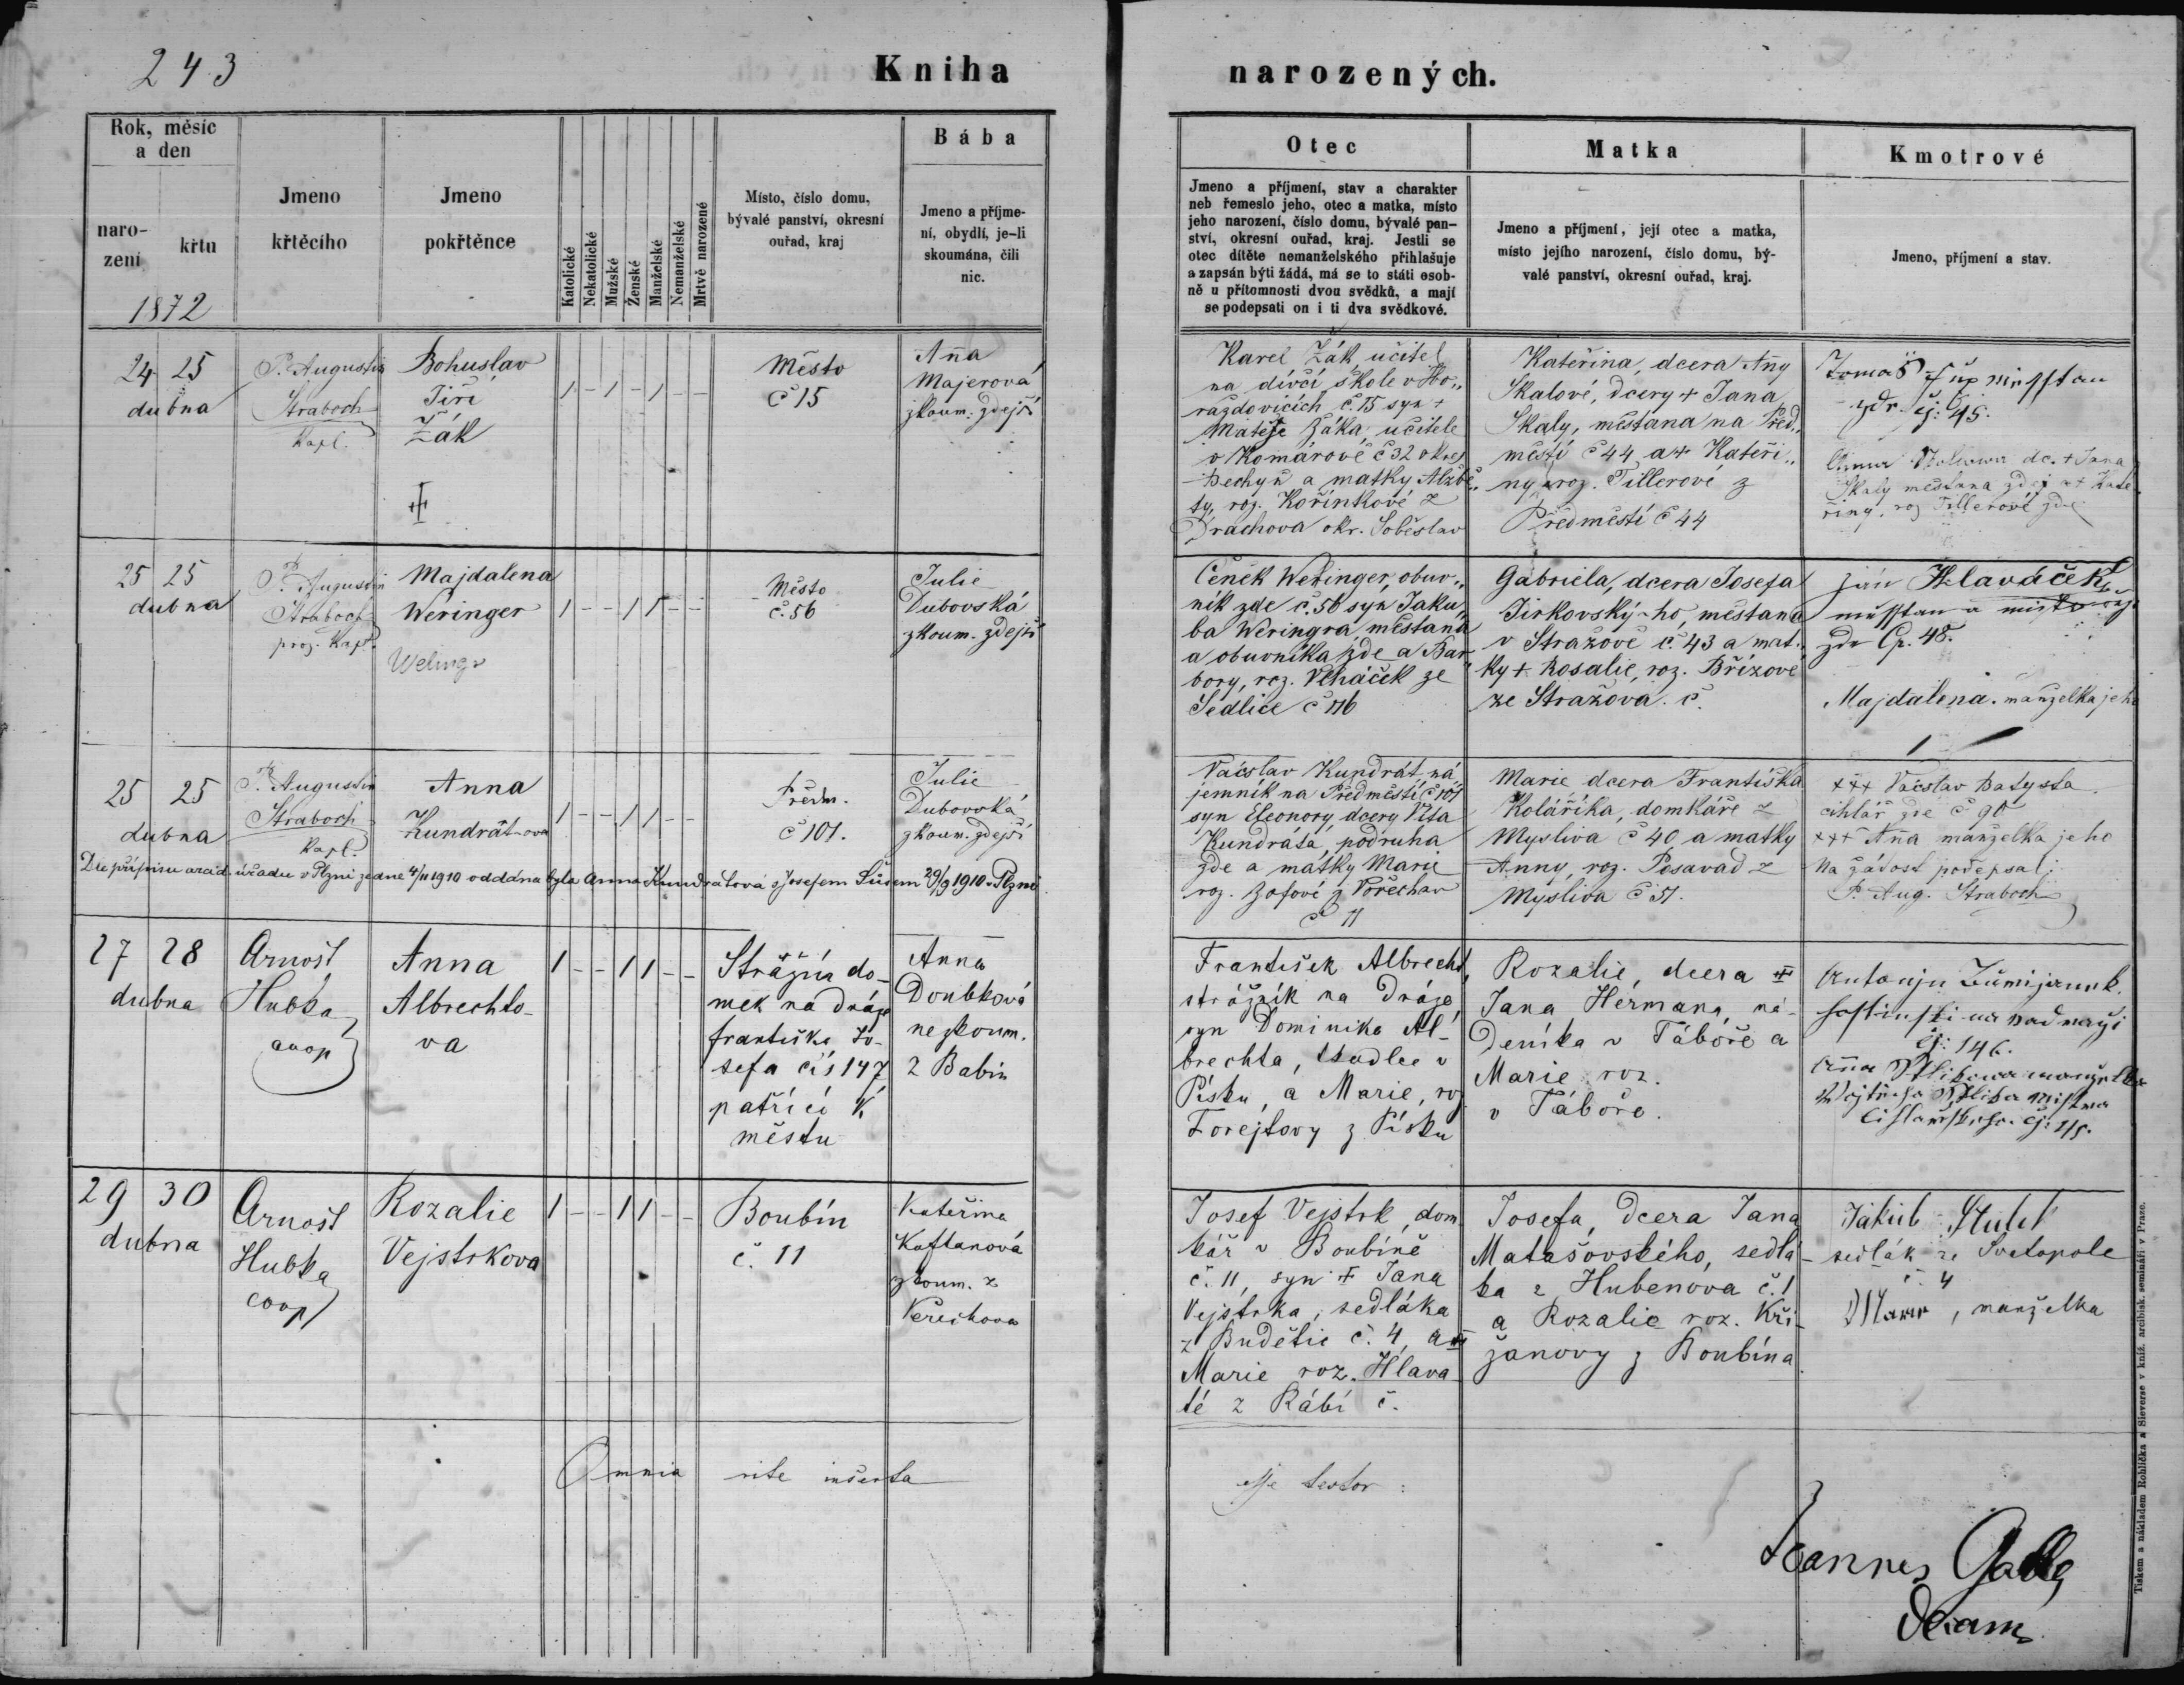 243
Kniha
narozených.
Rok, měsíc
a den
naro-
zení
křtu
1872
Jmeno
křtěcího
Jmeno
pokřtěnce
Katolické
Nekatolické
Mužské
Ženské
Manželské
Nemanželské
Mrtvě narozené
Místo, číslo domu,
bývalé panství, okresní
ouřad, kraj
Bába
Jmeno a příjme-
ní, obydlí, je-li
skoumána, čili
nic.
Otec
Jmeno a příjmení, stav a charakter
neb řemeslo jeho, otec a matka, místo
jeho narození, číslo domu, bývalé pan-
ství, okresní ouřad, kraj. Jestli se
otec dítěte nemanželského přihlašuje
a zapsán býti žádá, má se to státi osob-
ně u přítomnosti dvou svědků, a mají
se podepsati on i ti dva svědkové.
Matka
Jmeno a příjmení, její otec a matka,
místo jejího narození, číslo domu, bý-
valé panství, okresní ouřad, kraj.
Kmotrové
Jmeno, příjmení a stav.
24 25
dubna
P. Augustin
Straboch
Kapl.
Bohuslav
Jiří
Žák
1 - 1 - 1 - -
Město
č 15
Anna
Majerová
zkoum. zdejší
Karel Žák, učitel
na dívčí škole v Ho„
ražďovicích č. 15 syn +
Matěje Žáka, učitele
v Komárově č 32 okres
Bechyň a matky Alžbě„
ty, roz. Kořínkové z
Drachova okr. Soběslav
Kateřina, dcera Anny
Skalové, dcery + Jana
Skaly, měšťana na Před„
městí č 44 a + Kateři„
ny roz. Tillerové z
Předměstí č 44
Tomáš
čj: 45.
dc. + Jana
Skaly měšťana zdej a + Kate
řiny, roz Tillerové zde
25 25
dubna
P. Augustin
Straboch
proz. Kapl.
Majdalena
Weringer
1 - - 1 1 - -
Město
č. 56
Julie
Dubovská
zkoum. zdejší
Čeněk Weringer, obuv„
ník zde č. 56 syn Jaku„
ba Weringra, měšťana
a obuvníka zde a Bar„
bory, roz. Vlháček ze
Sedlice č 116
Gabriela, dcera Josefa
Jirkovský-ho, měšťana
v Strašově č. 43 a mat„
ky + Rosalie, roz. Břízové
ze Stražova. č.
Ján Hlaváček
zde Čp. 48.
Majdalena. manželka jeho
25 25
dubna
P. Augustin
Straboch
Kapl.
Anna
Kundrát-ova
1 - - 1 1 - -
Předm.
č 101.
Julie
Dubovská
zkoum. zdejší
Vácslav Kundrát, ná„
jemník na Předměstí č 101
syn Eleonory, dcery Víta
Kundráta, podruha
zde a matky Marie
roz. Zofové z Pořechav
č 11
Marie dcera Františka
Koláříka, domkáře z
Mysliva č 40 a matky
Anny, roz. Posavad z
Mysliva č 51.
+++ Vácslav Batysta
cihlář zde č 90
+++ Anna manželka jeho
Na žádost podepsal:
P. Aug. Straboch
Dle přípisu arcid. úřadu v Plzni ze dne 4/11 1910 oddána byla Anna Kundrátová s Josefem Šůsem 29/9 1910 v Plzni
27 28
dubna
Arnošt
Hubka
coop
Anna
Albrechto-
va
1 - - 1 1 - -
Strážní do-
mek na dráze
františka Jo-
sefa čís 147
patřící k
městu
Anna
Doubková
nezkoum.
z Babin
František Albrecht,
strážník na dráze,
syn Dominika Al-
brechta, v
Písku, a Marie, roz
Forejtovy z Písku
Rozalie, dcera +
Jana Hermana, ná-
deníka v Táboře a
Marie roz.
v Táboře.
čj: 146.
Anna
29 30
dubna
Arnošt
Hubka
coop
Rozalie
Vejstrkova
1 - - 1 1 - -
Boubín
č. 11
Kateřina
Kaftanová
zkoum. z
Veřechova
Josef Vejstrk, dom
kář v Boubíně
č. 11, syn + Jana
Vejstrka, sedláka
z Budětic č. 4, a +
Marie roz. Hlava
té z Rábí č.
Josefa, dcera Jana
Matašovského, sedlá-
ka z Hubenova č. 1
a Rozalie roz. Kři-
žanovy z Boubína
Jakub
sedlák ze Svatopole
č. 4
, manželka
Omnia rite inserta
esse testor:
Joannes
Decanus
Tiskem a nákladem Rohlíčka a Sieverse v kníž. arcibisk. semináři v Praze.